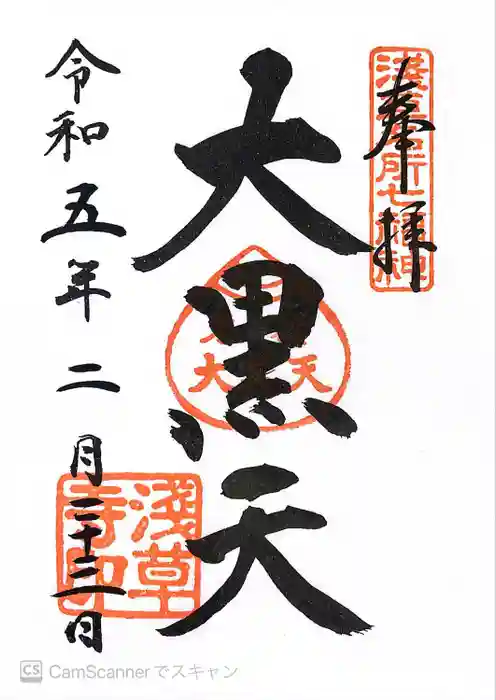 奉拝
淺草名所七福神
大黒天
令和五年二月二十三日
淺草寺印
CamScannerでスキャン